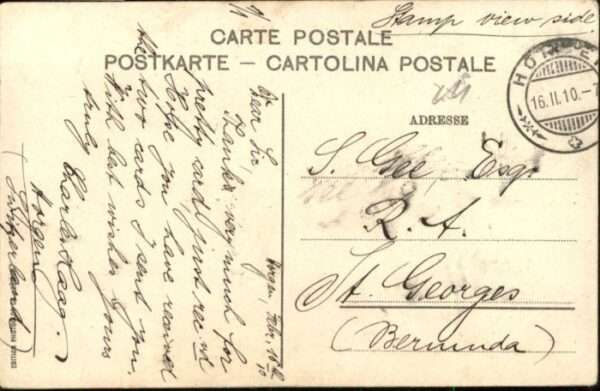 Stamp view side.
CARTE POSTALE
POSTKARTE — CARTOLINA POSTALE
HORGEN
16.II.10.-7
ADRESSE
S. Gee, Esq.
R. A.
St. Georges
(Bermuda)
Horgen, Febr. 15th 10
Dear Sir,
Thanks very much for
pretty card just rec'd
Hope you have received
the two cards I sent you.
With best wishes yours
truly
Charles Haag.
Horgen
Switzerland